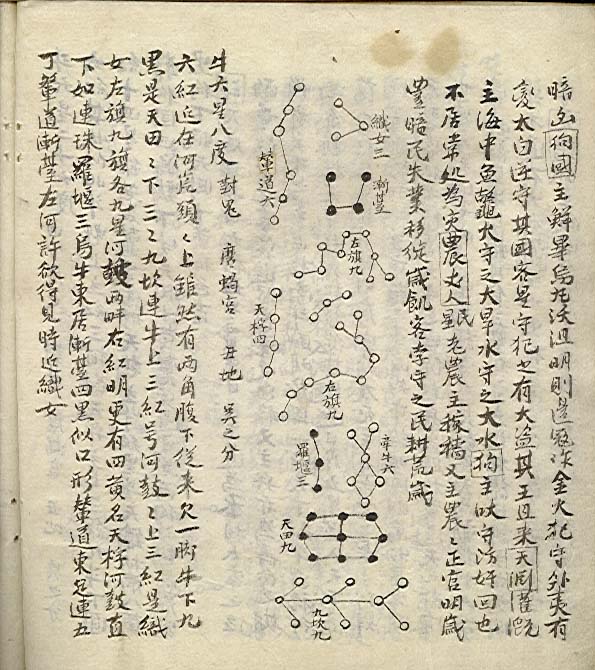 暗凶狗國主鮮畢烏丸沃沮明則邊寇作金火犯守外夷有
變太白逆守其國客星守犯也有大盜其王且来天淵灌溉
主海中魚鼈火守之大旱水守之大水狗主吠守防奸回也
不居常処為災農丈人星老農主稼穡又主農〻正官明歲
民
豊暗民失業移徙歲飢客孛守之民耕荒歲
織女三
漸臺
輦道六
左旗九
天桴四
左旗九
牽牛六
羅堰三
天田九
九坎九
牛六星八度 對鬼 磨蝎宮 丑地 吳之分
六紅近在河岸頭〻上雖然有兩角腹下従来欠一脚牛下九
黒是天田〻下三〻九坎連牛上三紅号河鼓〻上三紅是織
女左旗九旗各九星河鼓兩畔右紅明更有四黄名天桴河鼓直
下如連珠羅堰三烏牛東居漸臺四黒似口形輦道東足連五
丁輦道漸臺在河許欲得見時近織女